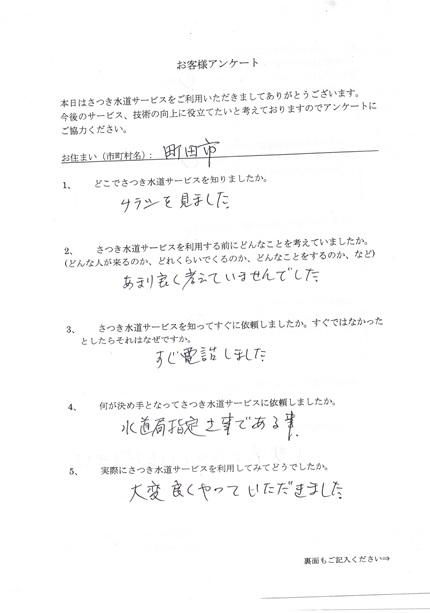 お客様アンケート
本日はさつき水道サービスをご利用いただきましてありがとうございます。
今後のサービス、技術の向上に役立てたいと考えておりますのでアンケートに
ご協力ください。
お住まい（市町村名）： 町田市
1、 どこでさつき水道サービスを知りましたか。
チラシを見ました
2、 さつき水道サービスを利用する前にどんなことを考えていましたか。
(どんな人が来るのか、どれくらいでくるのか、どんなことをするのか、など)
あまり良く考えていませんでした
3、 さつき水道サービスを知ってすぐに依頼しましたか。すぐではなかった
としたらそれはなぜですか。
すぐ電話しました
4、 何が決め手となってさつき水道サービスに依頼しましたか。
水道局指定工事である事、
5、 実際にさつき水道サービスを利用してみてどうでしたか。
大変良くやっていただきました
裏面もご記入ください⇒